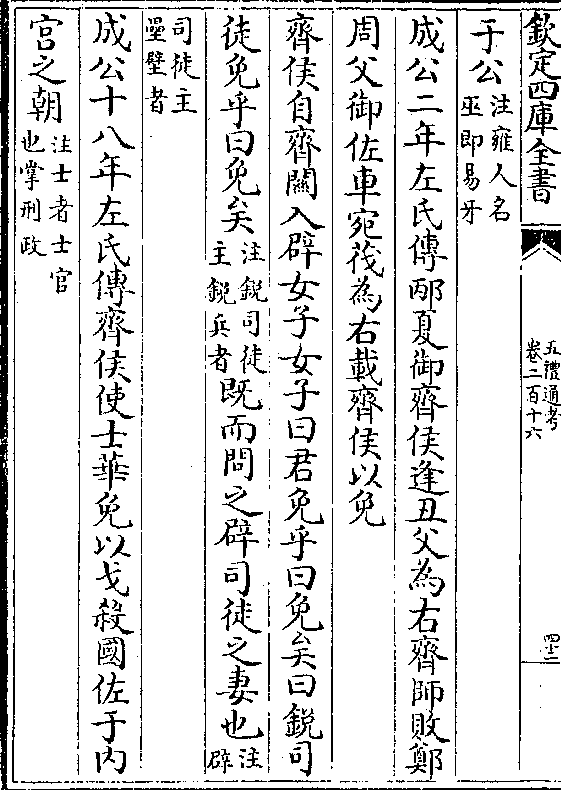 欽定四庫全書
五禮通考
卷二百十六
四十二
于公注雍人名巫即易牙
成公二年左氏傳邴夏御齊侯逢丑父為右齊師敗鄭
周父御佐車宛茷為右載齊侯以免
齊侯自齊關入辟女子女子曰君免乎曰免矣曰鋭司
徒免乎曰免矣注鋭司徒主鋭兵者既而問之辟司徒之妻也注辟
司徒主壘壁者
成公十八年左氏傳齊侯使士華免以戈殺國佐于内
宫之朝注士者士官也掌刑政